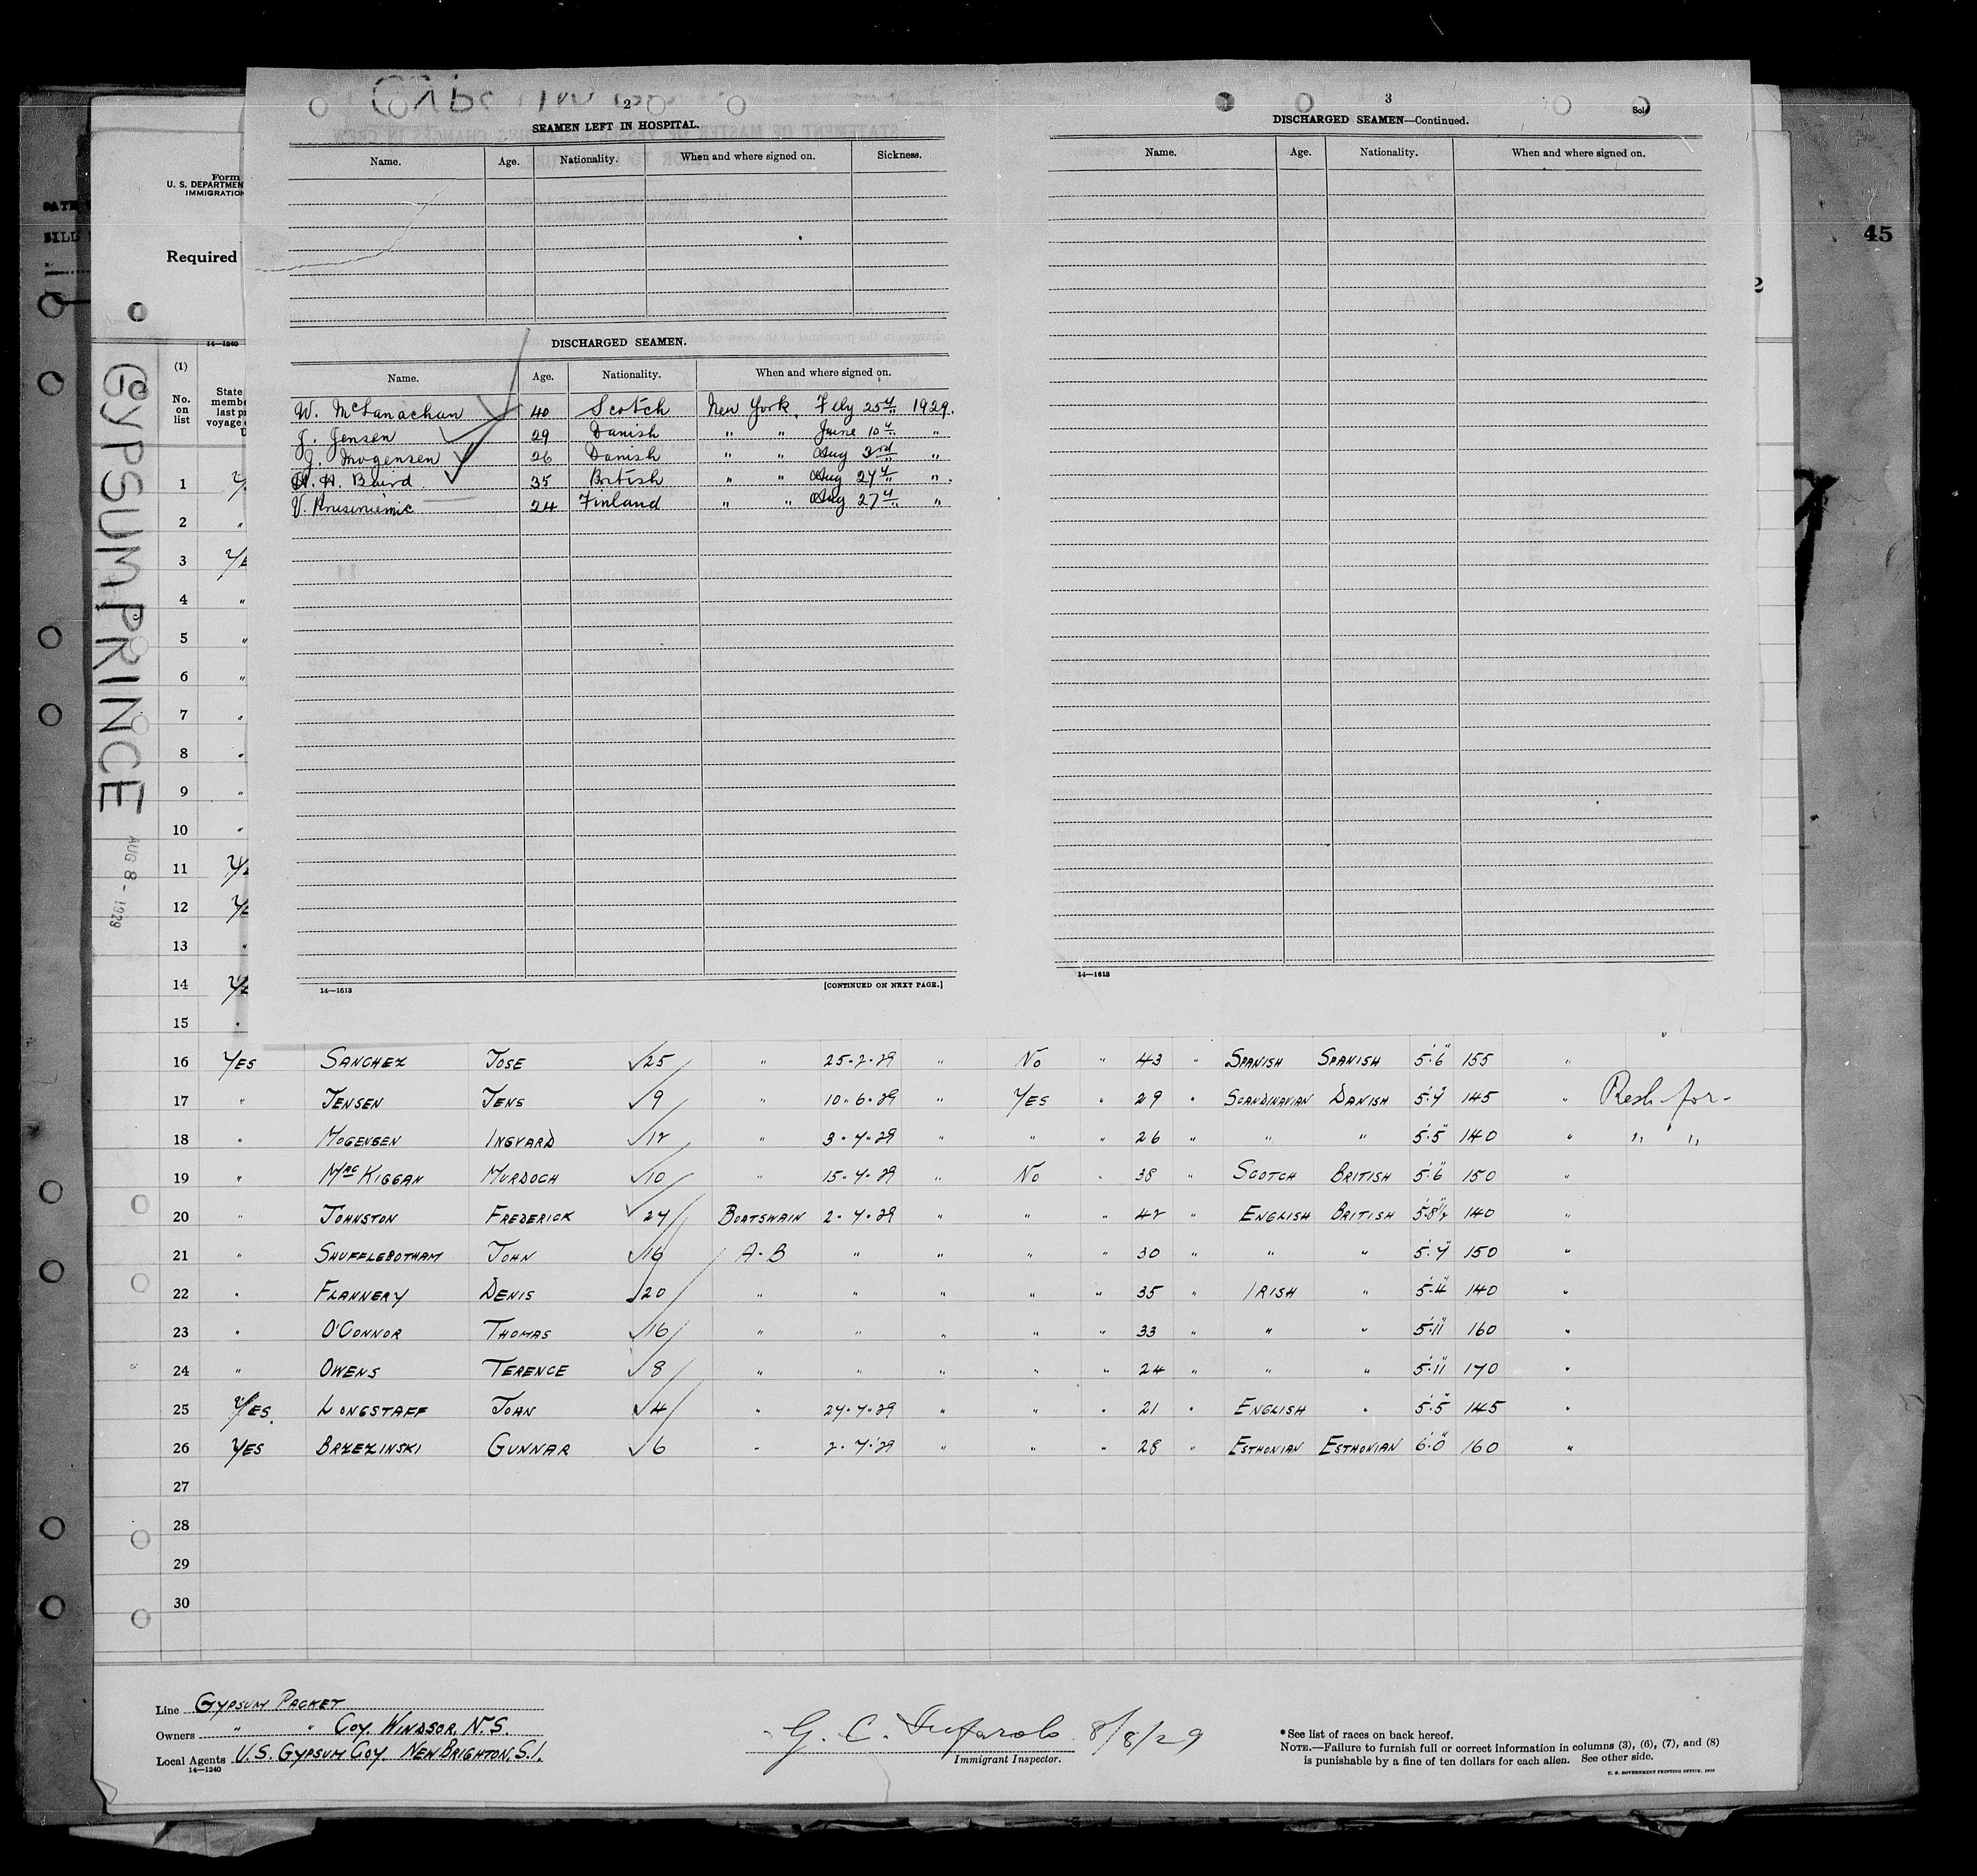 2
SEAMEN LEFT IN HOSPITAL.
Name. Age. Nationality. When and where signed on. Sickness.
DISCHARGED SEAMEN.
Name. Age. Nationality. When and where signed on.
W. McLanachan 40 Scotch New York, 1929.
J. Jensen 29 Danish " " June 10th "
J. Mogensen 26 Danish " " Aug 3rd "
A. Baird 35 British " " Aug 27th "
V. 24 Finland " " Aug 27th "
14—1613 [CONTINUED ON NEXT PAGE.]
3
Sold
DISCHARGED SEAMEN—Continued.
Name. Age. Nationality. When and where signed on.
14—1613
45
2
Form
U. S. DEPARTMEN
IMMIGRATION
Required
14—1240
(1)
No. on list
State
membe
last p
voyage
GYPSUM PRINCE
AUG 8 - 1929
1
2 "
3
4 "
5 "
6 "
7 "
8 "
9 "
10 "
11
12
13 "
14
15 "
16 YES SANCHEZ JOSE 25 " 25-2-29 " NO " 43 " SPANISH SPANISH 5'6" 155 "
17 " JENSEN JENS 9 " 10-6-29 " YES " 29 " SCANDINAVIAN DANISH 5'7" 145 "
18 " MOGENSEN INGVARD 12 " 3-7-29 " " " 26 " " " 5'5" 140 " " "
19 " KIGGAN MURDOCH 10 " 15-7-29 " NO " 38 " SCOTCH BRITISH 5'6" 150 "
20 " JOHNSTON FREDERICK 24 BOATSWAIN 2-7-29 " " " 42 " ENGLISH BRITISH 5'8½" 140 "
21 " SHUFFLEBOTHAM JOHN 16 A-B " " " " 30 " " " 5'7" 150 "
22 " FLANNERY DENIS 20 " " " " " 35 " IRISH " 5'4" 140 "
23 " O'CONNOR THOMAS 16 " " " " " 33 " " " 5'11" 160 "
24 " OWENS TERENCE 8 " " " " " 24 " " " 5'11" 170 "
25 YES LONGSTAFF JOHN 4 " 27-7-29 " " " 21 " ENGLISH " 5'5" 145 "
26 YES BRZEZINSKI GUNNAR 6 " 2-7-29 " " " 28 " ESTHONIAN ESTHONIAN 6'0" 160 "
27
28
29
30
Line GYPSUM PACKET
Owners " " COY. WINDSOR. N.S.
Local Agents U.S. GYPSUM COY. NEW BRIGHTON, S.I.
14—1240
G. C. 8/8/29
Immigrant Inspector.
* See list of races on back hereof.
NOTE.—Failure to furnish full or correct information in columns (3), (6), (7), and (8)
is punishable by a fine of ten dollars for each alien. See other side.
U. S. GOVERNMENT PRINTING OFFICE